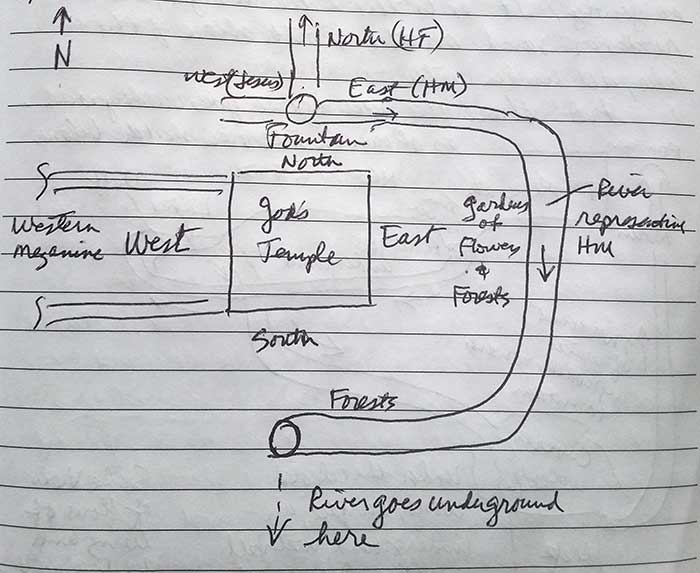 N
North (HF)
West (Jesus)
East (HM)
Fountain
North
God's
Temple
Western
mezanine
West
East
gardens
of
Flowers
&
Forests
River
representing
HM
South
Forests
River goes underground
here